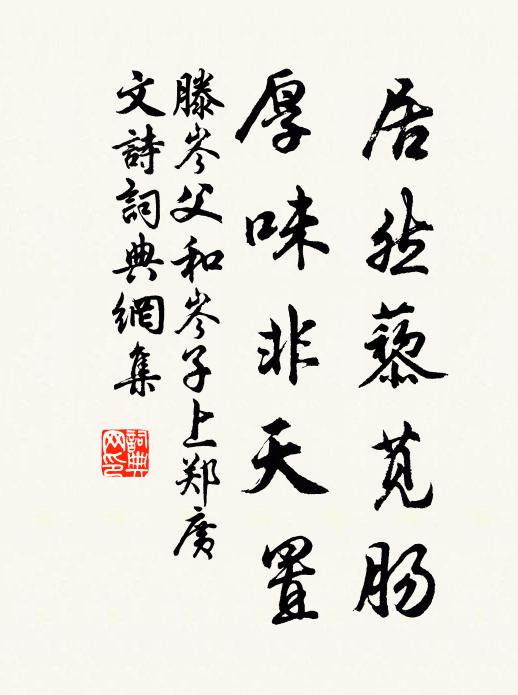 居然藜苋肠
厚味非天置
滕岑父和岑子上郑广
文詩詞典網集
詞典網印